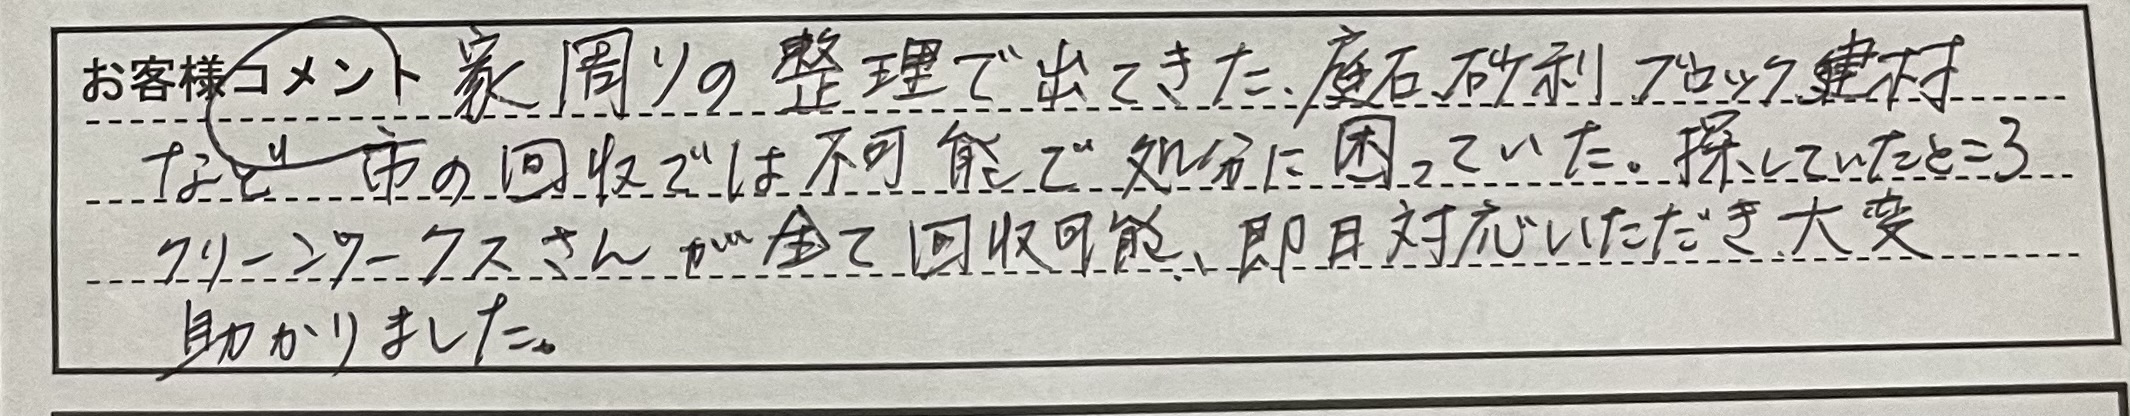 お客様コメント 家周りの整理で出てきた、庭石、砂利 ブロック 建材
など 市の回収では不可能で処分に困っていた。探していたところ
クリーンワークスさんが全て回収可能、即日対応いただき大変
助かりました。